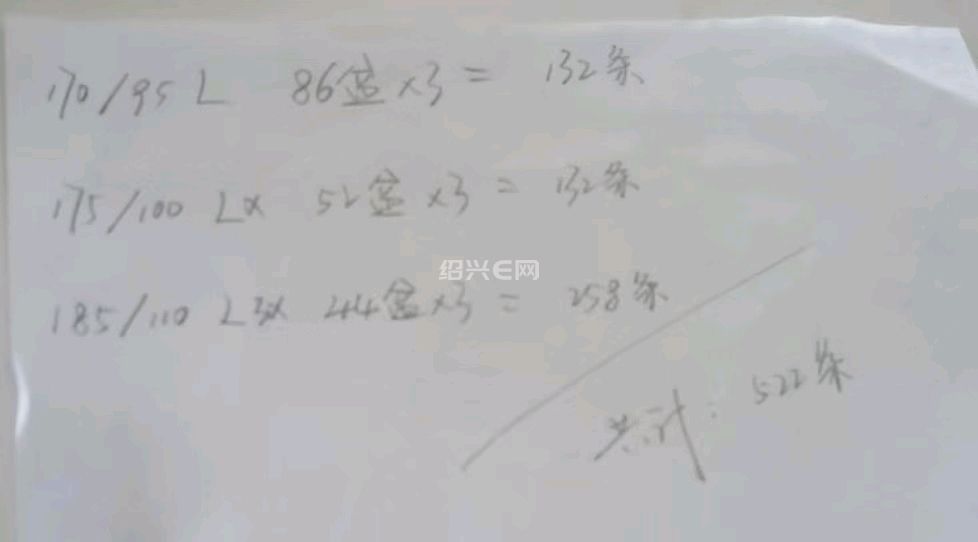 170/95 L 86盒×3 = 132条
175/100 LX 52盒×3 = 132条
绍兴E网
185/110 L3X 44盒×3 = 258条
共计: 522条